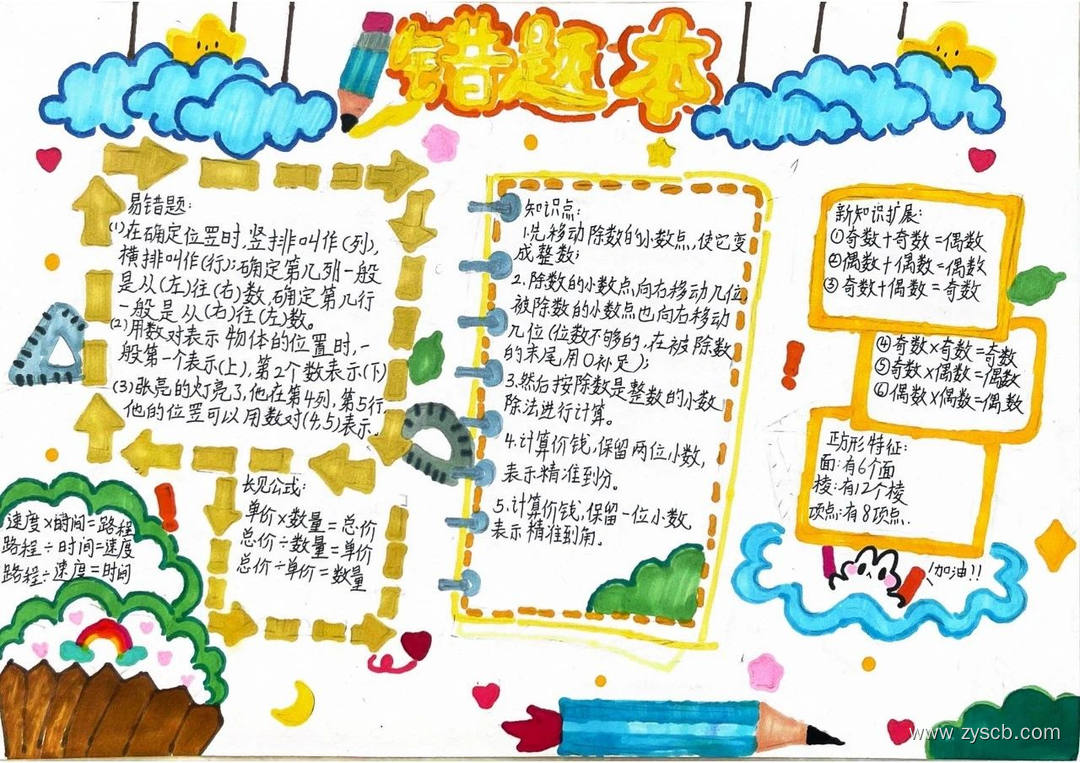 错题本
易错题:
(1)在确定位置时,竖排叫作(列),
横排叫作(行);确定第几列一般
是从(左)往(右)数,确定第几行
一般是从(右)往(左)数。
(2)用数对表示物体的位置时,一
般第一个表示(上),第2个数表示(下)
(3)张亮的灯亮了,他在第4列,第5行,
他的位置可以用数对(4,5)表示.
长见公式:
单价×数量=总价
总价÷数量=单价
总价÷单价=数量
速度×时间=路程
路程÷时间=速度
路程÷速度=时间
知识点:
1.先移动除数的小数点,使它变
成整数;
2.除数的小数点,向右移动几位,
被除数的小数点也向右移动
几位(位数不够的,在被除数
的末尾,用0补足);
3.然后按除数是整数的小数
除法进行计算。
4.计算价钱,保留两位小数,
表示精准到分。
5.计算价钱,保留一位小数,
表示精准到角。
新知识扩展:
①奇数+奇数=偶数
②偶数+偶数=偶数
③奇数+偶数=奇数
④奇数×奇数=奇数
⑤奇数×偶数=偶数
⑥偶数×偶数=偶数
正方形特征:
面:有6个面
棱:有12个棱
顶点:有8顶点.
加油!!
www.zyscb.com